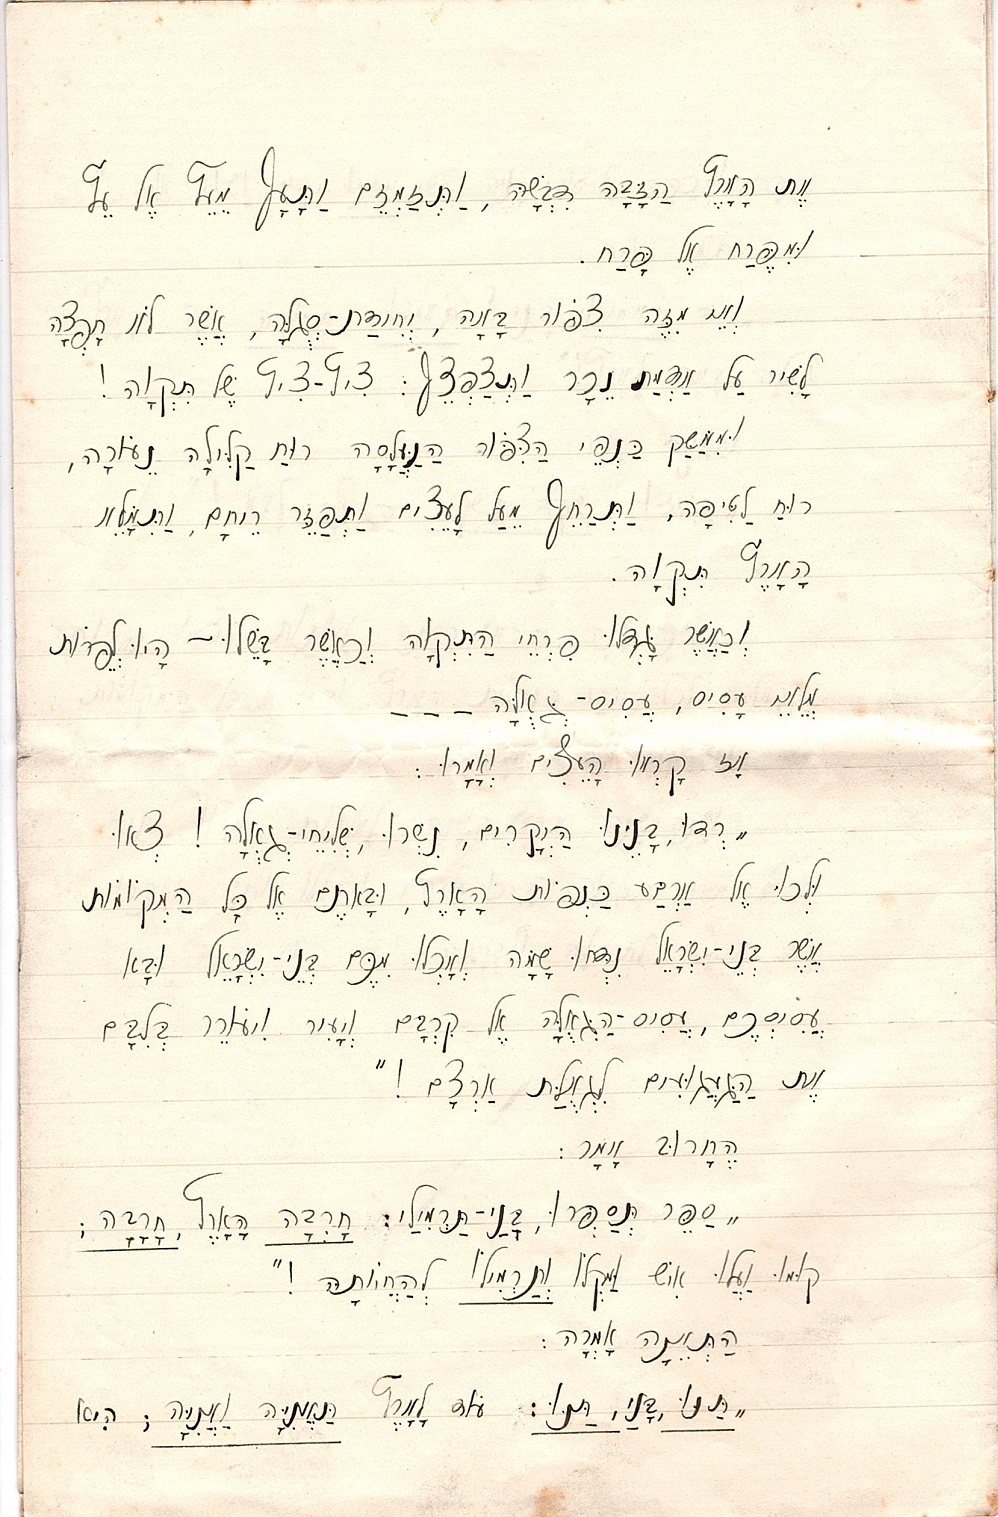 אֶת הָאָרֶץ הַזָּבָה דִּבְשָׁהּ, וַתְּזַמְזֵם וַתָּעָף מֵעֵץ אֶל עֵץ
וּמִפֶּרַח אֶל פֶּרַח.
וְאֵם מִזֶּה צִפּוֹר בָּאָה, יְחוּדַת-סְגֻלָּה, אֲשֶׁר לֹא חָפְצָה
לָשִׁיר עַל אַדְמַת נֵכָר וַתְּצַפְצֵף: צִיף-צִיף שֶׁל תִּקְוָה!
וּמִמַּשַּׁק כַּנְפֵי הַצִּפּוֹר הַנֶּעֱלָסָה רוּחַ קַלִּילָה נֵעוֹרָה,
רוּחַ לַטִּיפָה, וַתְּרַחֵף מֵעַל לָעֵצִים וַתְּפַזֵּר רֵיחָם, וַתִּמָּלֵא
הָאָרֶץ תִּקְוָה.
וְכַאֲשֶׁר גָּדְלוּ פִּרְחֵי הַתִּקְוָה וְכַאֲשֶׁר בָּשְׁלוּ – הָיוּ לְפֵרוֹת
מְלֵאֵי עָסִיס, עֲסִיס-גְּאֻלָּה – – –
אָז קָרְאוּ הָעֵצִים וְאָמְרוּ:
„רְדוּ, בָּנֵינוּ הַיְקָרִים, נִשְׁרוּ, שְׁלִיחֵי-גְאֻלָּה! צְאוּ
וּלְכוּ אֶל אַרְבַּע כַּנְפוֹת הָאָרֶץ, וּבָאתֶם אֶל כָּל הַמְּקוֹמוֹת
אֲשֶׁר בְּנֵי-יִשְׂרָאֵל נִדְּחוּ שָׁמָּה וְאָכְלוּ מִכֶּם בְּנֵי-יִשְׂרָאֵל וּבָא
עֲסִיסְכֶם, עֲסִיס-הַגְּאֻלָּה אֶל קִרְבָּם וְיָעִיר וִיעוֹרֵר בְּלִבָּם
אֶת הַגַּעֲגוּעִים לִגְאֻלַּת אַרְצָם!"
הֶחָרוּב אָמַר:
„סַפֵּר תְּסַפְּרוּ, בָּנַי-תַּרְמִילַי: חָרְבָה הָאָרֶץ, חָרָבָה;
קוּמוּ וַעֲלוּ אִישׁ וּמַקְלוֹ וְתַרְמִילוֹ לְהַחֲיוֹתָהּ!"
הַתְּאֵנָה אָמְרָה:
„תַּנּוּ, בָּנַי, תַּנּוּ: עוֹד לָאָרֶץ תַּאֲנִיָּה וַאֲנִיָּה; הִיא